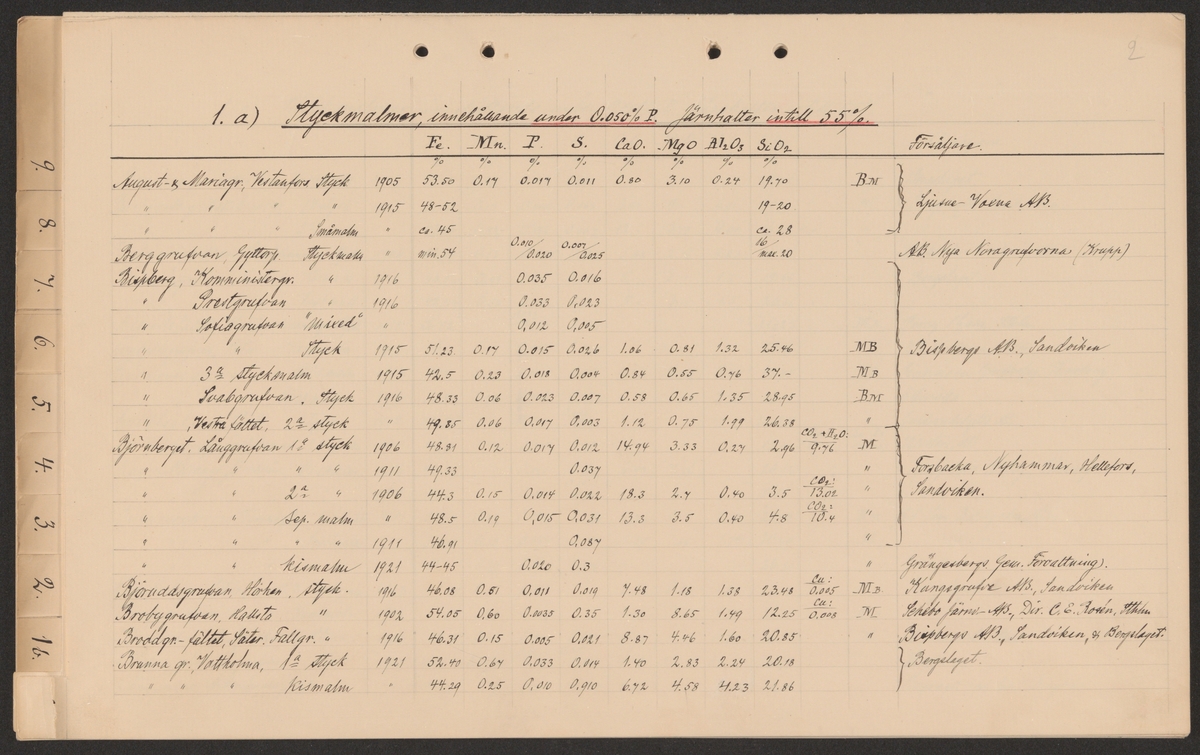 2
1. a) Styckmalmer, innehållande under 0.050% P. Järnhalter intill 55%.
Fe. Mn. P. S. CaO. MgO Al2O3 SiO2 Försäljare.
% % % % % % % %
August- & Mariagr, Vestanfors Styck 1905 53.50 0.17 0.017 0.011 0.80 3.10 0.24 19.70 B.M
" " " " 1915 48-52 19-20 Ljusne-Voxna AB.
" " " Småmalm " ca. 45 ca. 28
Berggrufvan Gyttorp Styckmalm " min. 54 0.010/0.020 0.007/0.025 16/max. 20 AB. Nya Noragrufvorna (Krupp)
Bispberg, Komministergr. " 1916 0.035 0.016
" Prestgrufvan 1916 0.033 0.023
" Sofiagrufvan "Mixed" " 0,012 0,005
" " Styck 1915 51.23 0.17 0.015 0.026 1.06 0.81 1.32 25.46 MB Bispbergs AB., Sandviken
" 3a styckmalm 1915 42.5 0.23 0.018 0.004 0.84 0.55 0.76 37.- MB
" Svabgrufvan. Styck 1916 48.33 0.06 0.023 0.007 0.58 0.65 1.35 28.95 B.M
" Vestra fältet, 2a styck " 49.35 0.06 0.017 0.003 1.12 0.75 1.99 26.38 "
Björnberget. Långgrufvan 1a styck 1906 48.81 0.12 0.017 0.012 14.94 3.33 0.27 2.96 CO2+H2O: 9.76 M
" " " " 1911 49.33 0.037 " Forsbacka, Nyhammar, Hellefors,
" " 2a " 1906 44.3 0.15 0.014 0.022 18.3 2.7 0.40 3.5 CO2: 13.02 " Sandviken.
" " Sep. malm " 48.5 0.19 0,015 0.031 13.3 3.5 0.40 4.8 CO2: 10.4 "
" " " " 1911 46.91 0.087 "
" " Kismalm 1921 44-45 0.020 0.3 " Grängesbergs Gem. Förvaltning).
Björuddsgrufvan Hörken, Styck. 1916 46.08 0.51 0.011 0.019 7.48 1.18 1.38 23.48 Cu: 0.005 M.B. Kungsgrufve AB, Sandviken
Brobygrufvan, Hallsta " 1902 54.05 0.60 0.0035 0.35 1.30 8.65 1.49 12.25 Cu: 0.008 M Schebo Järnv-AB., Dir. C. E. Rosén, Sthlm
Broddgr-fältet, Säter. Fallgr. " 1916 46.31 0.15 0.005 0.021 8.87 4.46 1.60 20.85 " Bispbergs AB., Sandviken, & Bergslaget.
Brunna gr, Vattholma, 1a styck 1921 52.40 0.67 0.033 0.014 1.40 2.83 2.24 20.18 Bergslaget.
" " " Kismalm " 44.29 0.25 0,010 0.910 6.72 4.58 4.23 21.86
9.
8.
7.
6.
5.
4.
3.
2.
1b.